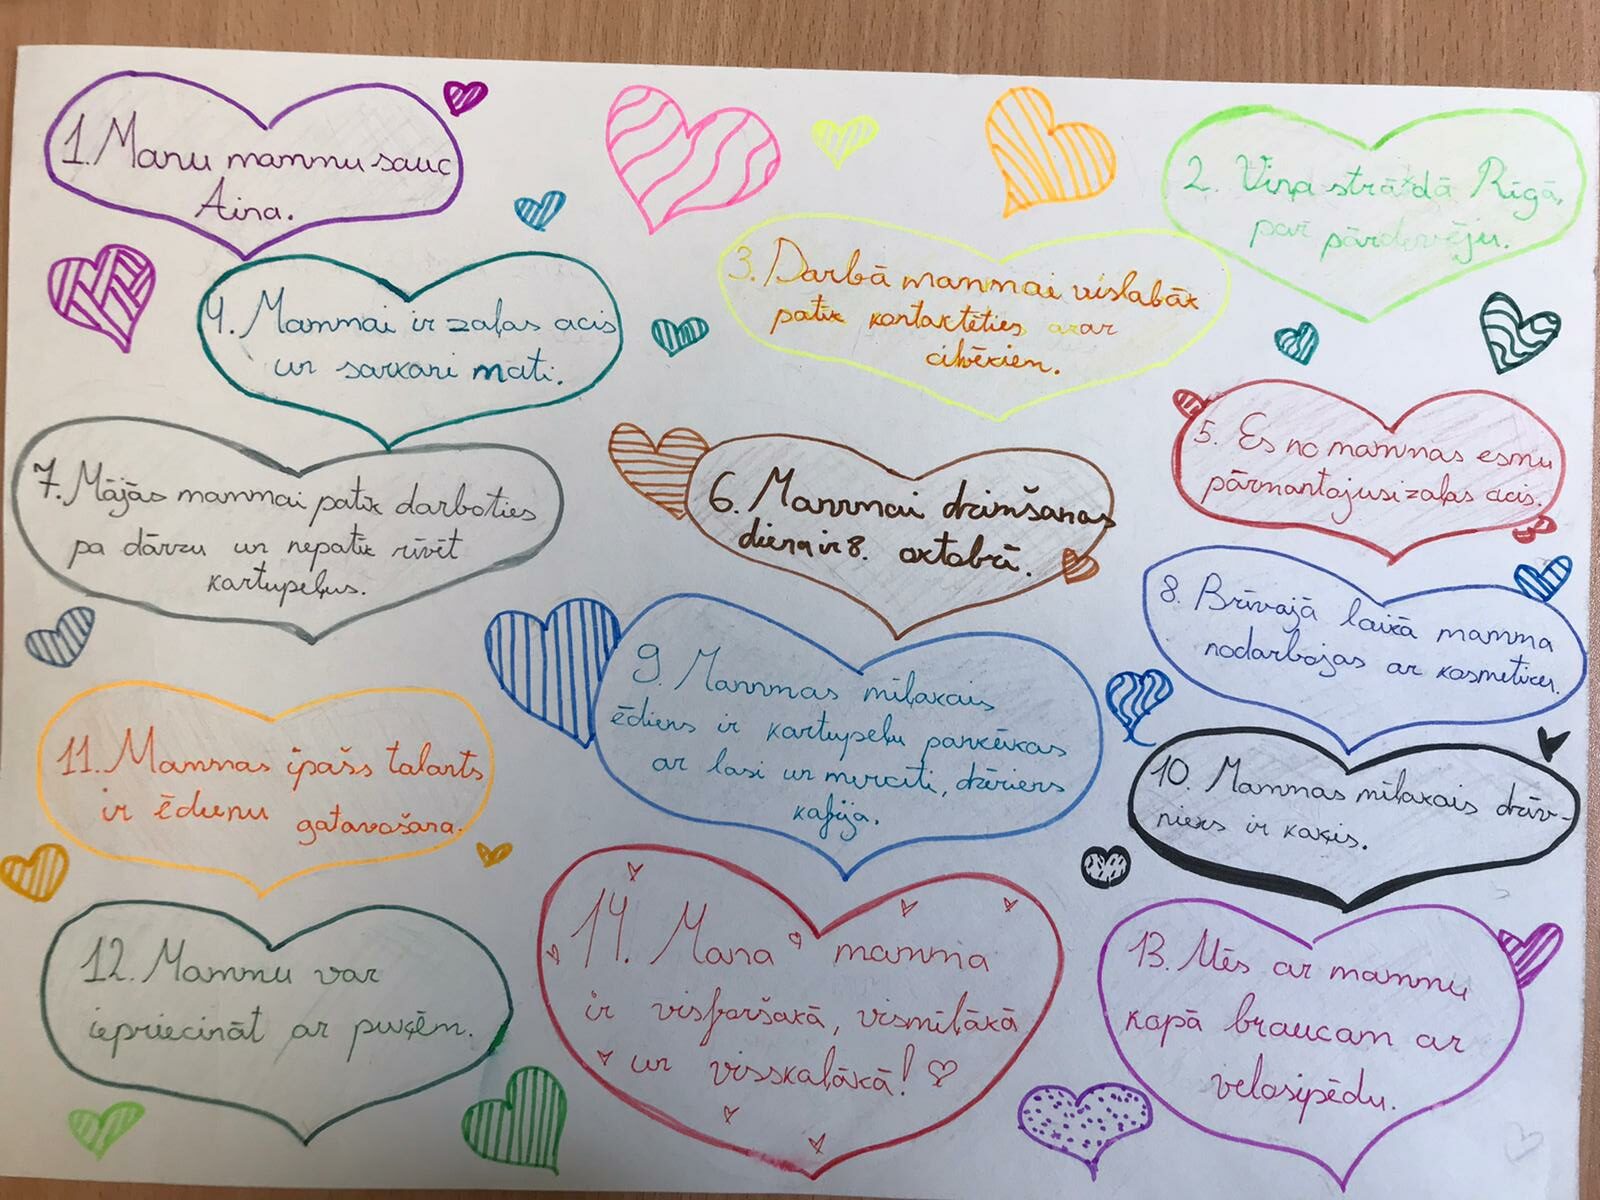 1. Manu mammu sauc
Aina.
2. Viņa strādā Rīgā,
par pārdevēju.
3. Darbā mammai vislabāk
patīk kontaktēties ar
cilvēkiem.
4. Mammai ir zaļas acis
un sarkani mati.
5. Es no mammas esmu
pārmantojusi zaļas acis.
6. Mammai dzimšanas
diena ir 8. oktobrī.
7. Mājās mammai patīk darboties
pa dārzu un nepatīk rīvēt
kartupeļus.
8. Brīvajā laikā mamma
nodarbojas ar kosmētiku.
9. Mammas mīļakais
ēdiens ir kartupeļu pankūkas
ar lasi un mērcīti, dzēriens
kafija.
10. Mammas mīļakais dzīv-
nieks ir kaķis.
11. Mammas īpašs talants
ir ēdienu gatavošana.
12. Mammu var
iepriecināt ar puķēm.
13. Mēs ar mammu
kopā braucam ar
velosipēdu.
14. Mana mamma
ir visforšakā, vismīļākā
un visskaļākā!